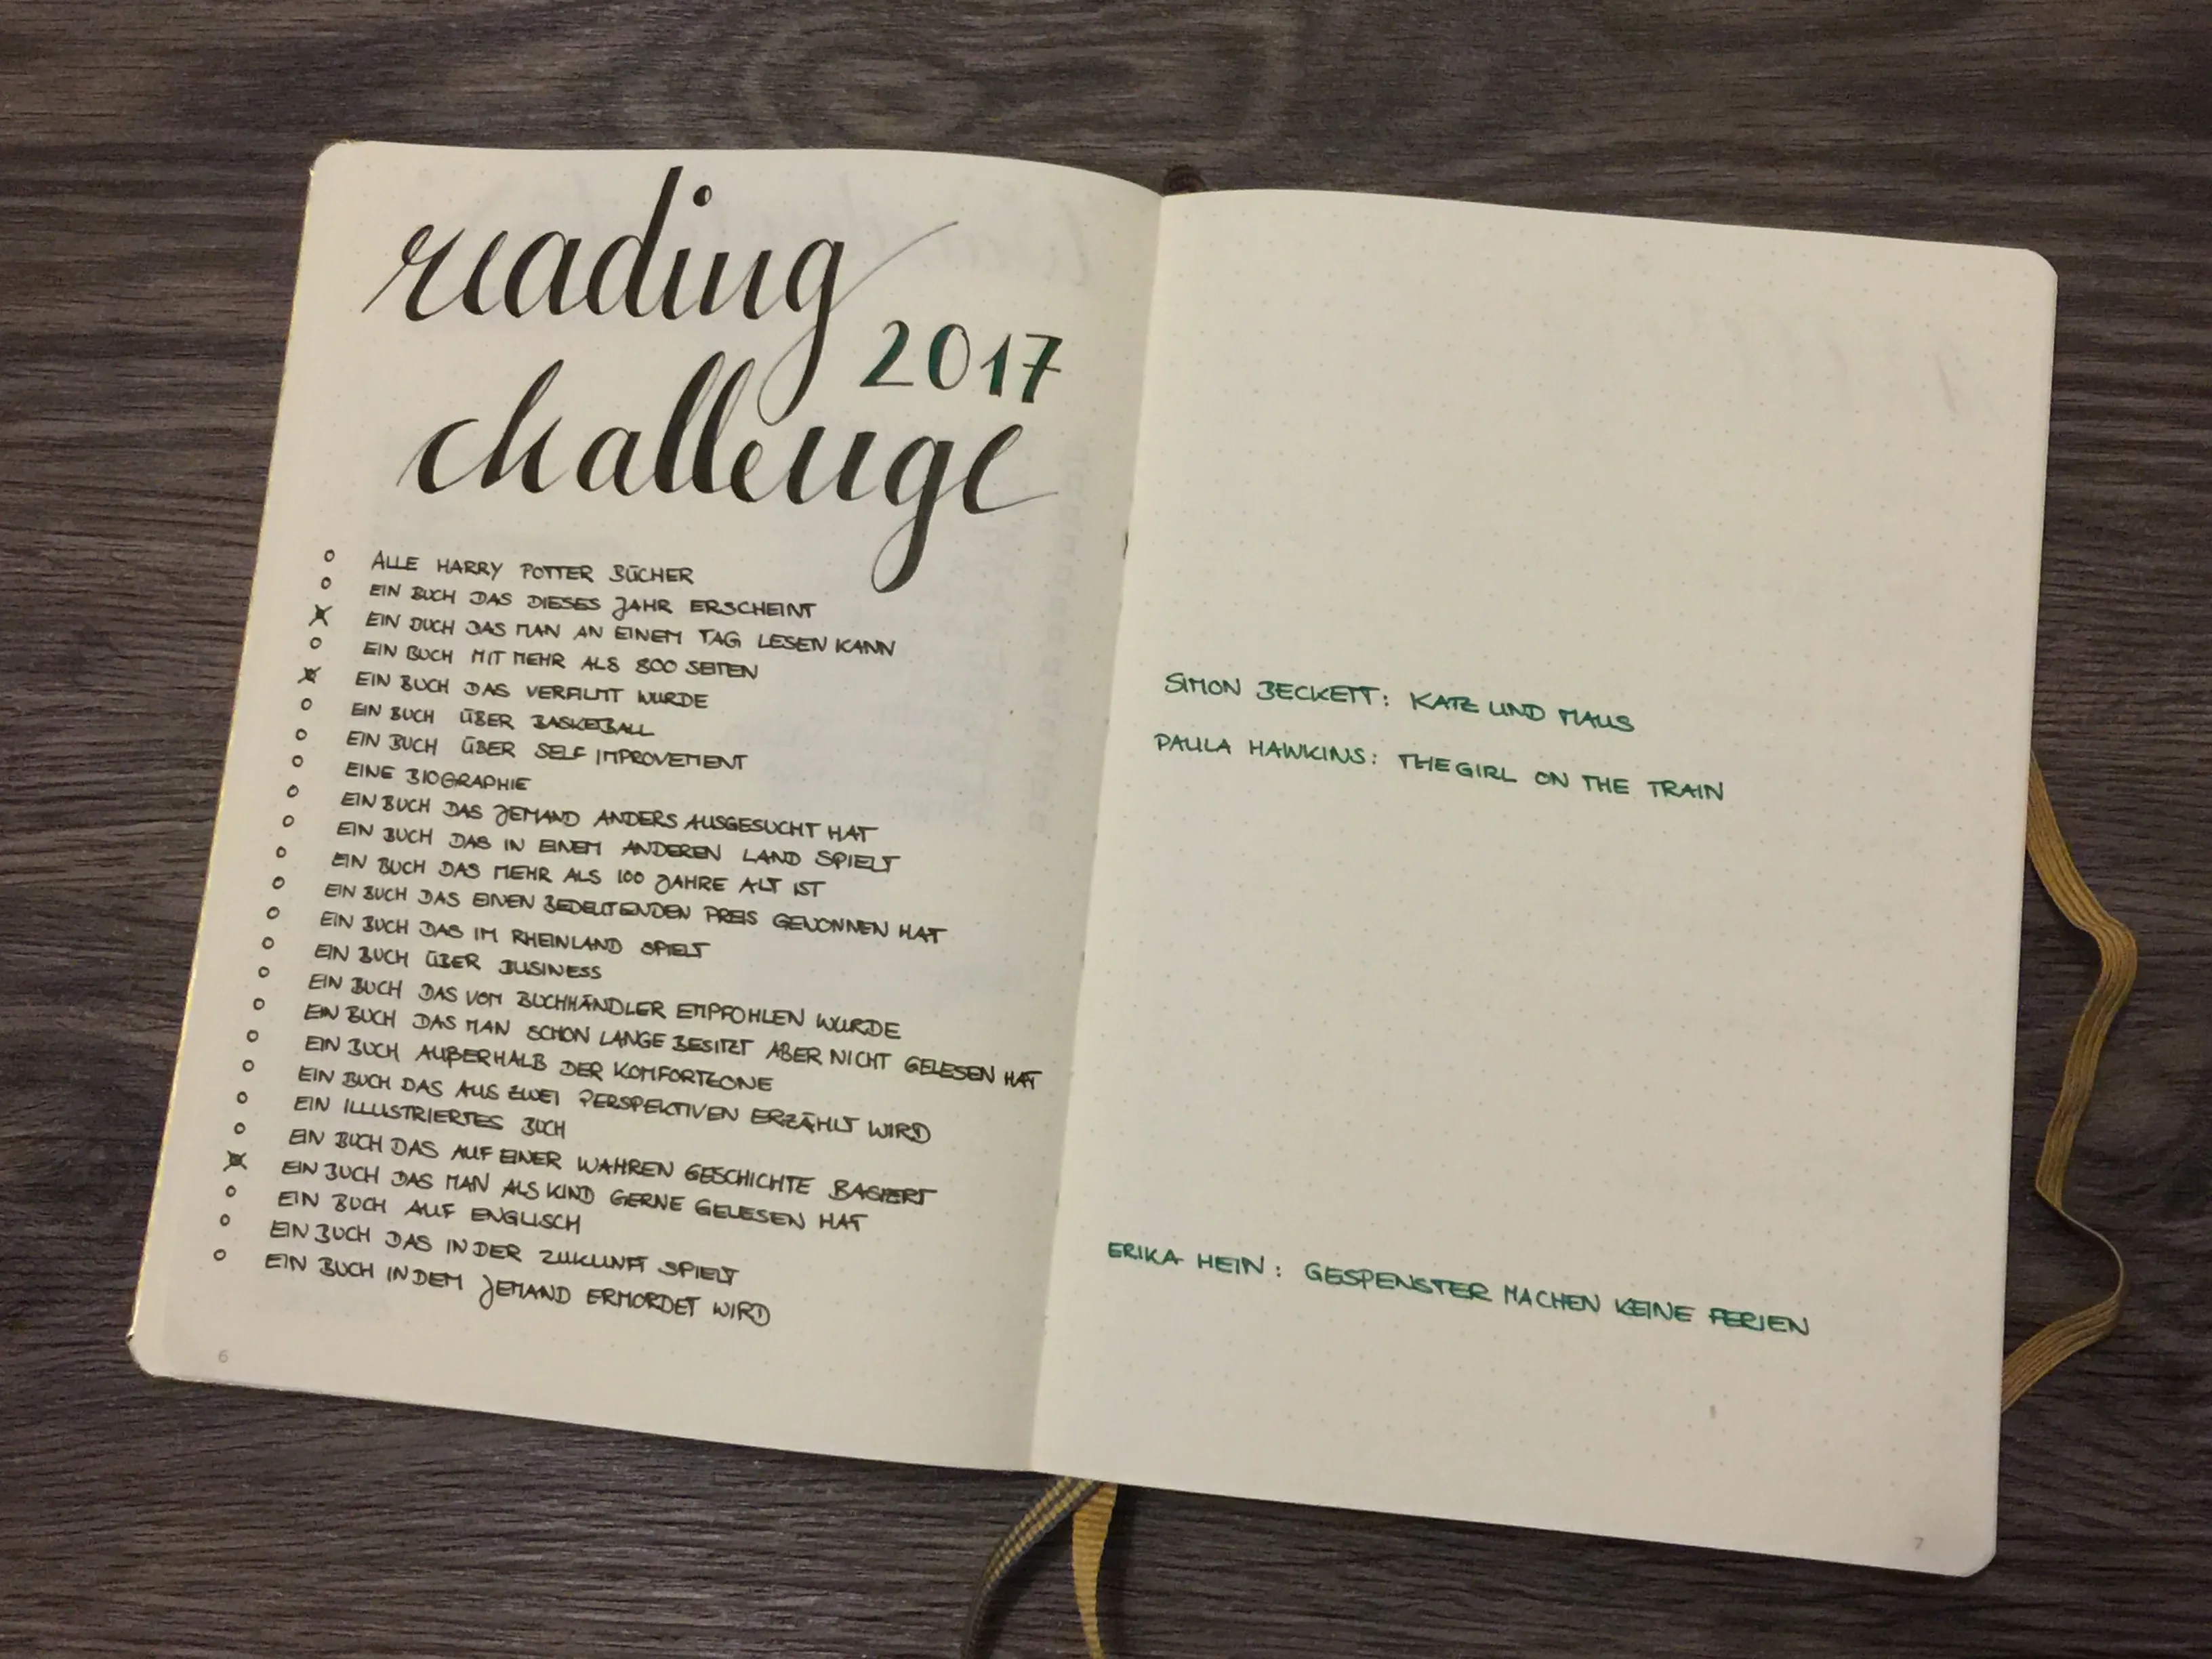 reading
2017
challenge
ALLE HARRY POTTER BÜCHER
EIN BUCH DAS DIESES JAHR ERSCHEINT
EIN BUCH DAS MAN AN EINEM TAG LESEN KANN
EIN BUCH MIT MEHR ALS 800 SEITEN
EIN BUCH DAS VERFILMT WURDE
EIN BUCH ÜBER BASKETBALL
EIN BUCH ÜBER SELF IMPROVEMENT
EINE BIOGRAPHIE
EIN BUCH DAS JEMAND ANDERS AUSGESUCHT HAT
EIN BUCH DAS IN EINEM ANDEREN LAND SPIELT
EIN BUCH DAS MEHR ALS 100 JAHRE ALT IST
EIN BUCH DAS EINEN BEDEUTENDEN PREIS GEWONNEN HAT
EIN BUCH DAS IM RHEINLAND SPIELT
EIN BUCH ÜBER BUSINESS
EIN BUCH DAS VOM BUCHHÄNDLER EMPFOHLEN WURDE
EIN BUCH DAS MAN SCHON LANGE BESITZT ABER NICHT GELESEN HAT
EIN BUCH AUßERHALB DER KOMFORTZONE
EIN BUCH DAS AUS ZWEI PERSPEKTIVEN ERZÄHLT WIRD
EIN ILLUSTRIERTES BUCH
EIN BUCH DAS AUF EINER WAHREN GESCHICHTE BASIERT
EIN BUCH DAS MAN ALS KIND GERNE GELESEN HAT
EIN BUCH AUF ENGLISCH
EIN BUCH DAS IN DER ZUKUNFT SPIELT
EIN BUCH IN DEM JEMAND ERMORDET WIRD
6
SIMON BECKETT: KATZ UND MAUS
PAULA HAWKINS: THE GIRL ON THE TRAIN
ERIKA HEIN: GESPENSTER MACHEN KEINE FERIEN
7